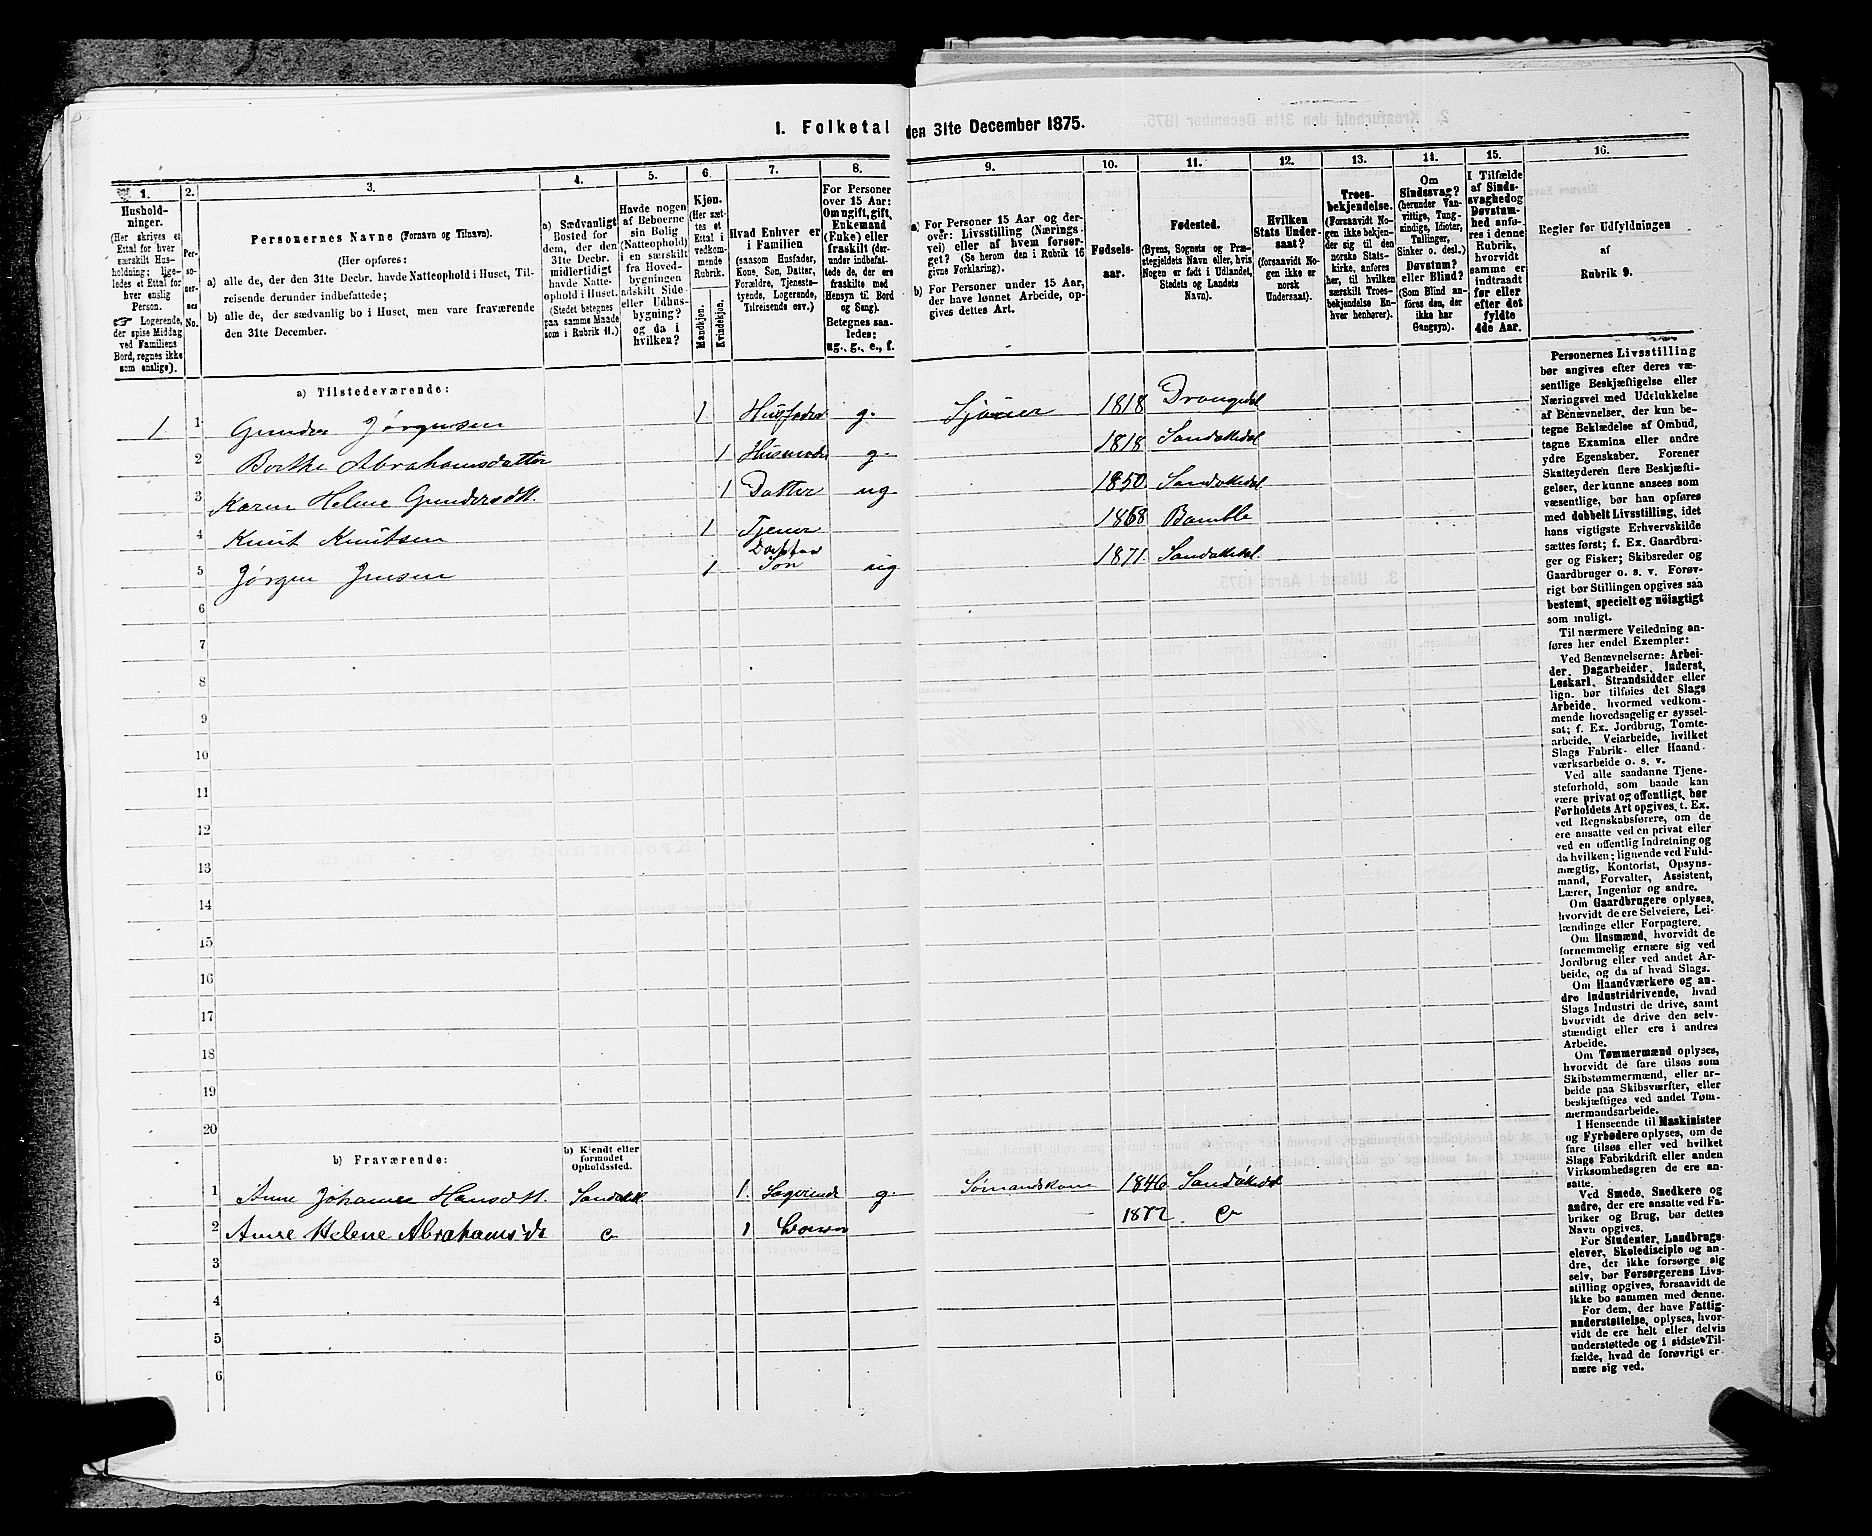 1. Folketal den 31te December 1875.
1. 2. 3. 4. 5. 6. 7. 8. 9. 10. 11. 12. 13. 14. 15. 16.
Hushold-
ninger.
(Her skrives et
Ettal for hver
særskilt Hus-
holdning; lige-
ledes et Ettal for
hver enslig
Person.
Logerende,
der spise Middag
ved Familiens
Bord, regnes ikke
som enslige).
Per-
so-
ner-
nes
No.
Personernes Navne (Fornavn og Tilnavn).
(Her opføres:
a) alle de, der den 31te Decbr. havde Natteophold i Huset, Til-
reisende derunder indbefattede;
b) alle de, der sædvanlig bo i Huset, men vare fraværende
den 31te December.
a) Sædvanligt
Bosted for
dem, der den
31te Decbr.
midlertidigt
havde Natte-
ophold i Huset.
(Stedet betegnes
paa samme Maade
som i Rubrik 11.)
Havde nogen
af Beboerne
sin Bolig
(Natteophold)
i en særskilt
fra Hoved-
bygningen
adskilt Side
eller Udhus-
bygning?
og da i
hvilken?
Kjøn.
(Her sæt-
tes et
Ettal i
vedkom-
mende
Rubrik.
Mandkjøn.
Kvindekjøn.
Hvad Enhver er
i Familien
(saasom Husfader,
Kone, Søn, Datter,
Forældre, Tjeneste-
tyende, Logerende,
Tilreisende osv.)
For Personer
over 15 Aar:
Om ugift, gift,
Enkemand
(Enke) eller
fraskilt (der-
under indbefat-
tede de, der ere
fraskilte med
Hensyn til Bord
og Seng).
Betegnes saa-
ledes:
ug., g., e., f.
a) For Personer 15 Aar og der-
over: Livsstilling (Nærings-
vei) eller af hvem forsør-
get? (Se herom den i Rubrik 16
givne Forklaring).
b) For Personer under 15 Aar,
der have lønnet Arbeide, op-
gives dettes Art.
Fødsels-
aar.
Fødested.
(Byens, Sognets og Præ-
stegjeldets Navn eller, hvis
Nogen er født i Udlandet,
Stedets og Landets
Navn).
Hvilken
Stats Under-
saat?
(forsaavidt No-
gen ikke er
norsk
Undersaat).
Troes-
bekjendelse.
(Forsaavidt No-
gen ikke bekjen-
der sig til den
norske Stats-
kirke, anføres
her, til hvilken
særskilt Troes-
bekjendelse En-
hver henhører).
Om
Sindssvag?
(herunder Van-
vittige, Tung-
sindige, Idioter,
Tullinger,
Sinker o. desl.)
Døvstum?
eller Blind?
(Som Blind an-
føres den, der
ikke har
Gangsyn).
I Tilfælde
af Sinds-
svaghed og
Døvstum-
hed anfø-
res i denne
Rubrik,
hvorvidt
samme er
indtraadt
før eller
efter det
fyldte
4de Aar.
Regler for Udfyldningen
af
Rubrik 9.
a) Tilstedeværende:
1 1 Gunder Jørgensen 1 Husfader g. 1818 Drangedal
2 Berthe Abrahamsdatter 1 Husmoder g. 1818 Sandøkedal
3 Karen Helene Gundersdtt. 1 Datter ug 1850 Sandøkedal
4 Knut Knutsen 1 Tjener 1868 Bamble
5 Jørgen Jensen 1 Datters Søn ug 1871. Sandøkedal.
6
7
8
9
10
11
12
13
14
15
16
17
18
19
20
b) Fraværende:
b) Kjendt eller
formodet
Opholdssted.
1 Anne Johanne Hansdtt. 1. Logerende g. Sømandskone 1846 Sandøkedal
2 Anne Helene Abrahamsd 1 1872.
3
4
5
6
Personernes Livsstilling
bør angives efter deres væ-
sentlige Beskjæftigelse eller
Næringsvei med Udelukkelse
af Benævnelser, der kun be-
tegne Beklædelse af Ombud,
tagne Examina eller andre
ydre Egenskaber. Forener
Skatteyderen flere Beskjæfti-
gelser, der kunne ansees som
væsentlige, bør han opføres
med dobbelt Livsstilling, idet
hans vigtigste Erhvervskilde
sættes først; f. Ex. Gaardbru-
ger og Fisker; Skibsreder og
Gaardbruger o. s. v. Forøv-
rigt bør Stillingen opgives saa
bestemt, specielt og nøiagtigt
som muligt.
Til nærmere Veiledning an-
føres her endel Exempler:
Ved Benævnelserne: Arbei-
der, Dagarbeider, Inderst,
Løskarl, Strandsidder eller
lign. bør tilføies det Slags
Arbeide, hvormed vedkom-
mende hovedsagelig er syssel-
sat; f. Ex. Jordbrug, Tomte-
arbeide, Veiarbeide, hvilket
Slags Fabrik- eller Haand-
værksarbeide o. s. v.
Ved alle saadanne Tjene-
steforhold, som baade kan
være privat og offentligt, bør
Forholdets Art opgives, t. Ex.
ved Regnskabsførere, om de
ere ansatte ved en privat eller
ved en offentlig Indretning og
da hvilken; lignende ved Fuld-
mægtig, Kontorist, Opsyns-
mand, Forvalter, Assistent,
Lærer, Ingeniør og andre.
Om Gaardbrugere oplyses,
hvorvidt de ere Selveiere, Lei-
lændinge eller Forpagtere.
Om Husmænd, hvorvidt de
fornemmelig ernære sig ved
Jordbrug eller ved andet Ar-
beide, og da af hvad Slags.
Om Haandværkere og an-
dre Industridrivende, hvad
Slags Industri de drive, samt
hvorvidt de drive den selv-
stændigt eller ere i andres
Arbeide.
Om Tømmermænd oplyses,
hvorvidt de fare tilsøs som
Skibstømmermænd, eller ar-
beide paa Skibsværfter, eller
beskjæftiges ved andet Tøm-
mermandsarbeide.
I Henseende til Maskinister
og Fyrbødere oplyses, om de
fare tilsøs eller ved hvilket
Slags Fabrikdrift eller anden
Virksomhedsgren de ere an-
satte.
Ved Smede, Snedkere og
andre, der ere ansatte ved Fa-
briker og Brug, bør dettes
Navn opgives.
For Studenter, Landbrugs-
elever, Skoledisciple og an-
dre, der ikke forsørge sig
selv, bør Forsørgerens Livs-
stilling opgives, forsaavidt de
ikke bo sammen med denne.
For dem, der have Fattig-
understøttelse, oplyses, hvor-
vidt de ere helt eller delvis
understøttede og i sidste Til-
fælde, hvad de forøvrigt er-
nære sig ved.